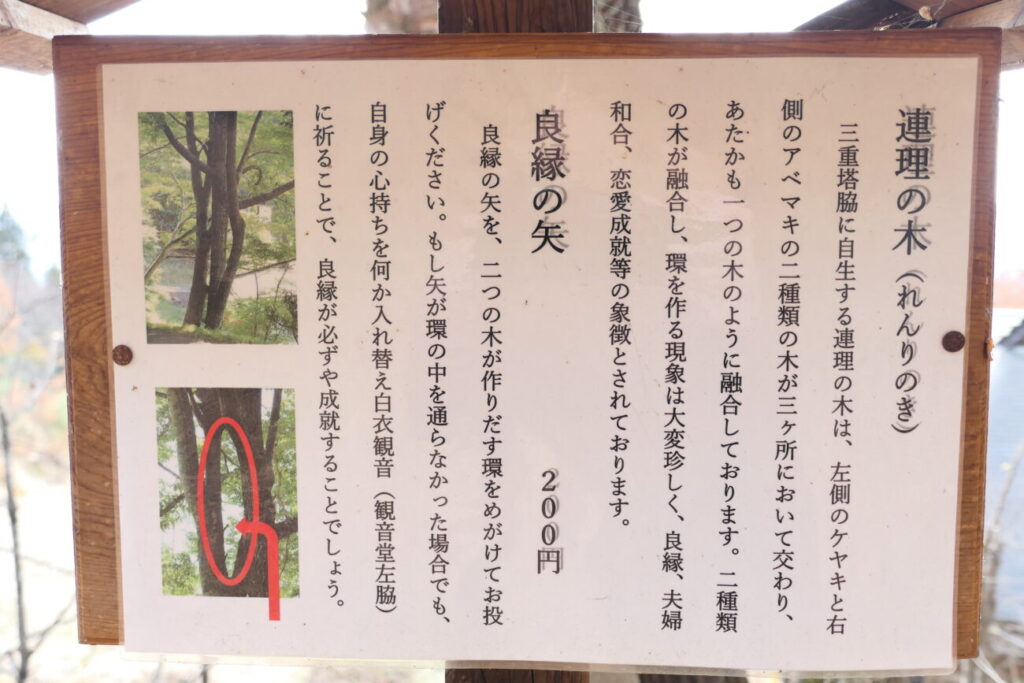 連理の木(れんりのき)
三重塔脇に自生する連理の木は、左側のケヤキと右
側のアベマキの二種類の木が三ヶ所において交わり、
あたかも一つの木のように融合しております。二種類
の木が融合し、環を作る現象は大変珍しく、良縁、夫婦
和合、恋愛成就等の象徴とされております。
良縁の矢 200円
良縁の矢を、二つの木が作りだす環をめがけてお投
げください。もし矢が環の中を通らなかった場合でも、
自身の心持ちを何か入れ替え白衣観音(観音堂左脇)
に祈ることで、良縁が必ずや成就することでしょう。